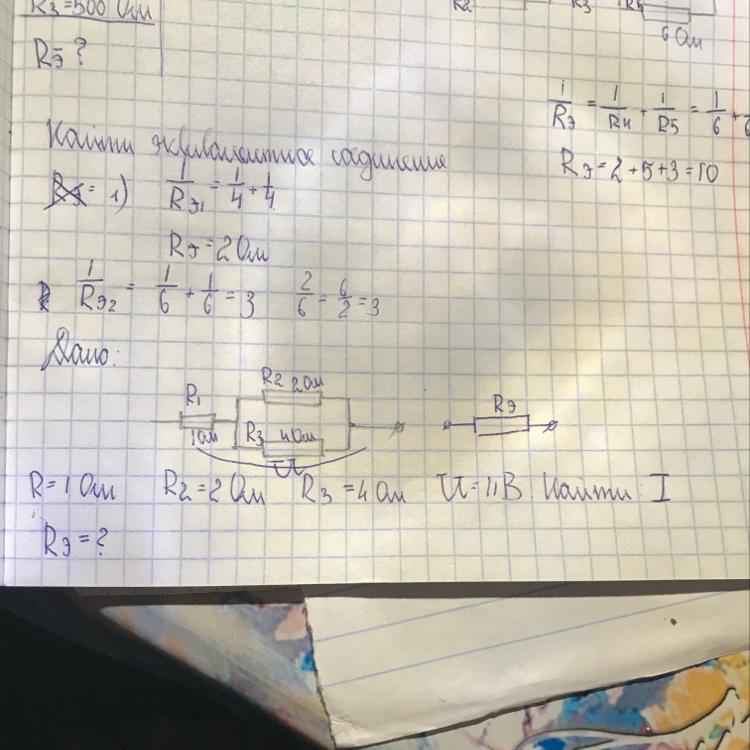 R3=500 Ом
Rэ-?
R2 R3 R5
6 Ом
1/Rэ = 1/R4 + 1/R5 = 1/6 +
Rэ=2+5+3=10
Найти эквивалентное соединение
1) 1/Rэ1 = 1/4 + 1/4
Rэ=2 Ом
1/Rэ2 = 1/6 + 1/6 = 3 2/6 = 6/2 = 3
Дано:
R1 R2 2Ом Rэ
1Ом R3 4Ом
U
R=1 Ом R2=2 Ом R3=4 Ом U=11В Найти I
Rэ=?